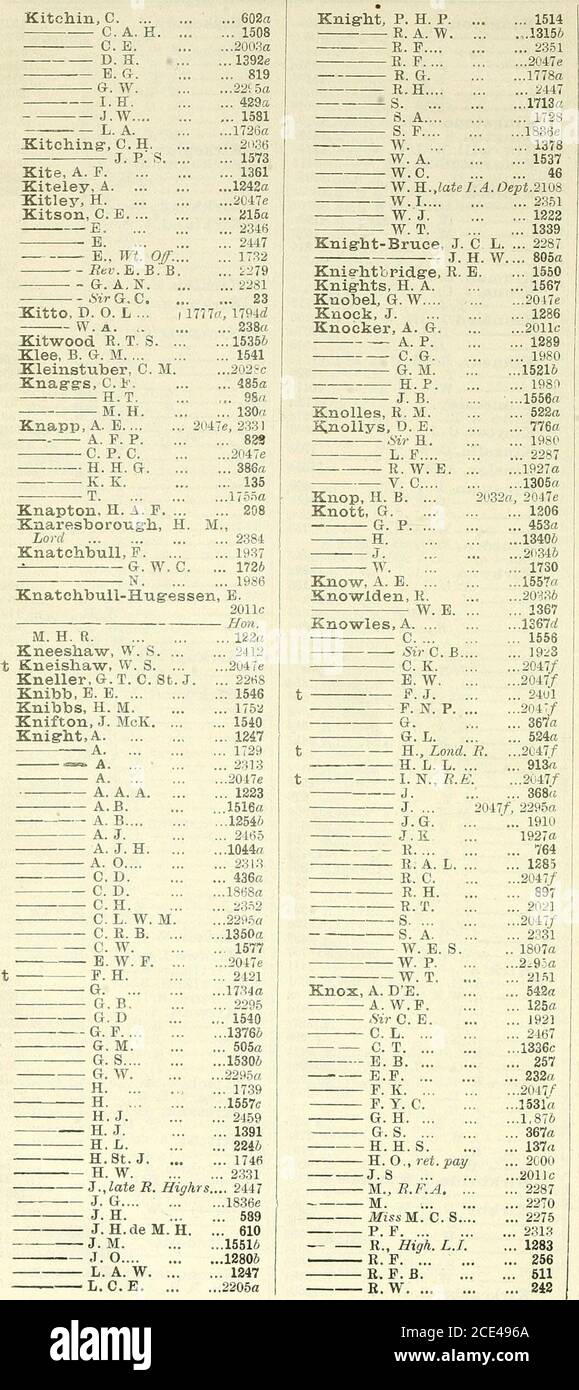 Kitchin, C. ... ... ... 602a
——— C. A. H. ... ... 1508
——— C. E. ... ...2003a
——— D. H. ... ...1392e
——— E. G. ... ... 819
——— G. W. ... ...2295a
——— I. H. ... ... 429a
——— J. W.... ... ... 1581
——— L. A. ... ...1726a
Kitching, C. H. ... ... 2036
——— J. P. S. ... ... 1573
Kite, A. F. ... ... 1361
Kiteley, A. ... ...1242a
Kitley, H. ... ...2047e
Kitson, C. E. ... ... ... 215a
——— E. ... ... ... 2346
——— E. ... ... ... 2447
——— E., Wt. Off.... ... 1732
——— Rev. E. B. B. ... 2279
——— G. A. N. ... ... 2281
——— Sir G. C. ... ... 23
Kitto, D. O. L ... 1777a, 1794d
——— W. A. .. ... 238a
Kitwood R. T. S. ... ...1535b
Klee, B. G. M. ... ... 1541
Kleinstuber, C. M. ...202-c
Knaggs, C. F. ... ... 485a
——— H. T. ... ... 98a
——— M. H. ... ... 130a
Knapp, A. E. ... ... 2047e, 2331
——— A. F. P. ... ... 822
——— C. P. C. ... ...2047e
——— H. H. G. ... ... 386a
——— K. K. ... ... 135
——— T. ... ... ...1755a
Knapton, H. A. F. ... ... 298
Knaresborough, H. M.,
Lord ... ... ... ... 2384
Knatchbull, F. ... ... 1937
——— G. W. C. ... 172b
——— N. ... ... 1986
Knatchbull-Hugessen, E.
2011c
——— Hon.
M. H. R. ... ... ... 122a
Kneeshaw, W. S. ... ... 2412
t Kneishaw, W. S. ... ...2047e
Kneller, G. T. C. St. J. ... 2268
Knibb, E. E. ... ... ... 1546
Knibbs, H. M. ... ... 1752
Knifton, J. McK. ... ... 1540
Knight, A. ... ... ... 1247
——— A. ... ... ... 1729
——— A. ... ... ... 2313
——— A. ... ... ...2047e
——— A. A. A. ... ... 1223
——— A. B. ... ...1516a
——— A. B.... ... ...1254b
——— A. J. ... ... 2465
——— A. J. H. ... ...1044a
——— A. O.... ... ... 2313
——— C. D. ... ... 436a
——— C. D. ... ...1868a
——— C. H. ... ... 2352
——— C. L. W. M. ...2295a
——— C. R. B. ... ...1350a
——— C. W. ... ... 1577
——— E. W. F. ... ...2047e
t ——— F. H. ... ... 2421
——— G. ... ... ...1734a
——— G. B. ... ... 2295
——— G. D ... ... 1540
——— G. F. ... ... ...1376b
——— G. M. ... ... 505a
——— G. S.... ... ...1530b
——— G. W. ... ...2295a
——— H. ... ... ... 1739
——— H. ... ... ...1557c
——— H. J. ... ... 2459
——— H. J. ... ... 1391
——— H. L. ... ... 224b
——— H. St. J. ... ... 1746
——— H. W. ... ... 2331
——— J., late R. Highrs.... 2447
——— J. G.... ... ...1836e
——— J. H. ... ... 589
——— J. H. de M. H. ... 610
——— J. M. ... ...1551b
——— J. O.... ... ...1280b
——— L. A. W. ... ... 1247
——— L. C. E. ... ...2205a
Knight, P. H. P. ... ... 1514
——— R. A. W. ... ...1315b
——— R. F.... ... ... 2351
——— R. F.... ... ...2047e
——— R. G. ... ...1778a
——— R. H.... ... ... 2447
——— S. ... ... ...1713a
——— S. A.... ... ... 1728
——— S. F.... ... ...1836e
——— W. ... ... ... 1378
——— W. A. ... ... 1537
——— W. C. ... ... 46
——— W. H., late I. A. Dept.2108
——— W. I.... ... ... 2351
——— W. J. ... ... 1222
——— W. T. ... ... 1339
Knight-Bruce, J. C L. ... 2287
——— J. H. W.... 805a
Knightbridge, R. E. ... 1550
Knights, H. A. ... ... 1567
Knobel, G. W.... ... ...2047e
Knock, J. ... ... ... 1286
Knocker, A. G. ... ...2011c
——— A. P. ... ... 1289
——— C. G. ... ... 1980
——— G. M. ... ...1521b
——— H. P. ... ... 1980
——— J. B. ... ...1556a
Knolles, R. M. ... ... 522a
Knollys, D. E. ... ... 776a
——— Sir H. ... ... 1980
——— L. F.... ... ... 2287
——— R. W. E. ... ...1927a
——— V. C.... ... ...1305a
Knop, H. B. ... 2032a, 2047e
Knott, G. ... ... ... 1206
——— G. P. ... ... ... 453a
——— H. ... ... ...1340b
——— J. ... ... ...2034b
——— W. ... ... ... 1730
Know, A. E. ... ... ...1557a
Knowlden, R. ... ...2033b
——— W. E. ... ... 1367
Knowles, A. ... ... ...1367d
——— C. ... ... ... 1556
——— Sir C. B.... ... 1923
——— C. K. ... ...2047f
——— E. W. ... ...2047f
t ——— F. J. ... ... 2401
——— F. N. P. ... ...2047f
——— G. ... ... ... 367a
——— G. L. ... ... 524a
t ——— H., Lond. R. ...2047f
——— H. L. L. ... ... 913a
t ——— I. N., R.E. ...2047f
——— J. ... ... ... 368a
——— J. ... 2047f, 2295a
——— J. G. ... ... 1910
——— J. K ... ... 1927a
——— R. ... ... ... 764
——— R. A. L. ... ... 1285
——— R. C. ... ...2047f
——— R. H. ... ... 897
——— R. T. ... ... 2021
——— S. ... ... ...2047f
——— S. A. ... ... 2331
——— W. E. S. .. 1807a
——— W. P. ... ...2295a
——— W. T. ... ... 2151
Knox, A. D'E. ... ... 542a
——— A. W. F. ... ... 125a
——— Sir C. E. ... ... 1921
——— C. L. ... ... ... 2467
——— C. T. ... ... ...1336c
——— E. B. ... ... ... 257
——— E. F. ... ... ... 232a
——— F. K. ... ...2047f
——— F. Y. C. ... ...1531a
——— G. H. ... ... ...1,876
——— G. S. ... ... ... 367a
——— H. H. S. ... ... 137a
——— H. O., ret. pay ... 2000
——— J. S ... ... ...2011c
——— M., R.F.A. ... ... 2287
——— M. ... ... ... 2270
——— Miss M. C. S.... ... 2275
——— P. F. ... ... ... 2313
——— R., High. L.I. ... 1283
——— R. F. ... ... ... 256
——— R. F. B. ... ... 511
——— R. W. ... ... ... 242
alamy
2CE496A